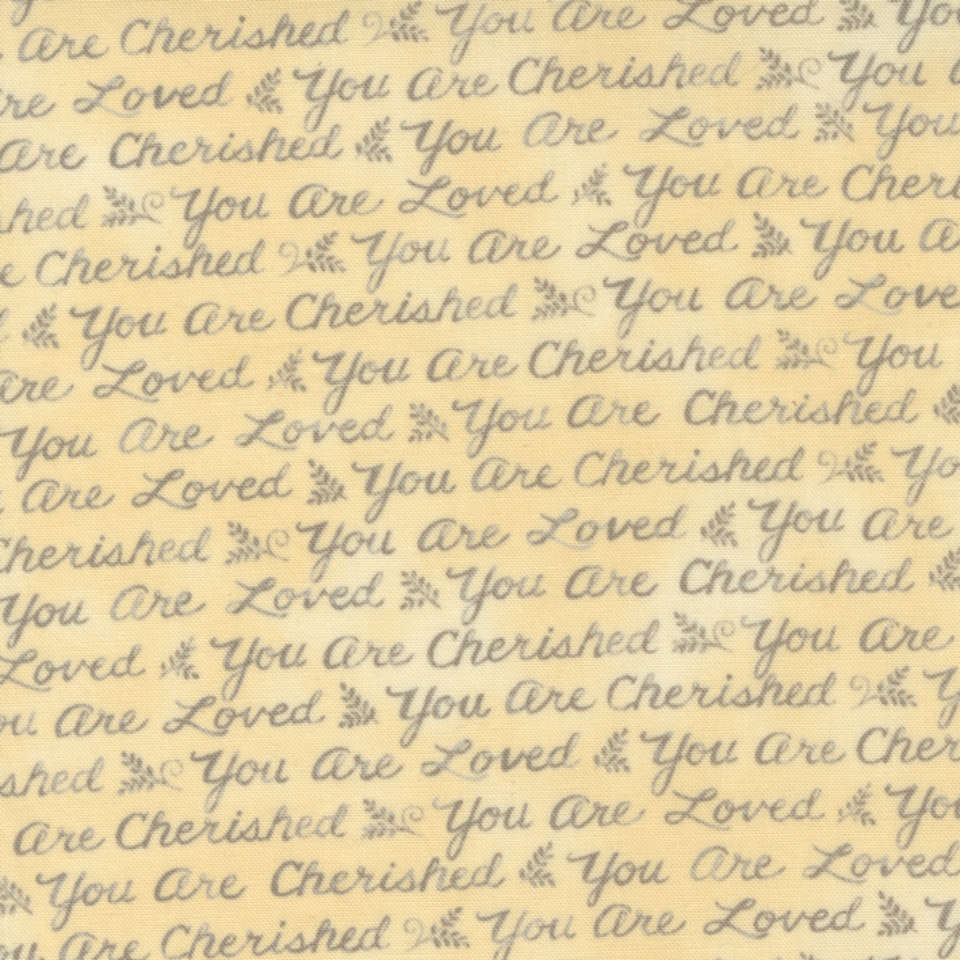 Are Cherished You Are Loved You
Are Loved You Are Cherished You
Are Cherished You Are Loved You
You Are Loved You Are
Cherished You Are Loved You
You Are Cherished You Are Love
Are Loved You Are Cherished You
You Are Loved You Are Cherished
Are Loved You Are Cherished You
Cherished You Are Loved You Are
You Are Loved You Are Cherished
Loved You Are Cherished You Are
You Are Loved You Are Cherished
You Are Loved You Are Cher
Are Cherished You Are Loved You
You Are Cherished You Are Loved
You Are Cherished You Are Loved